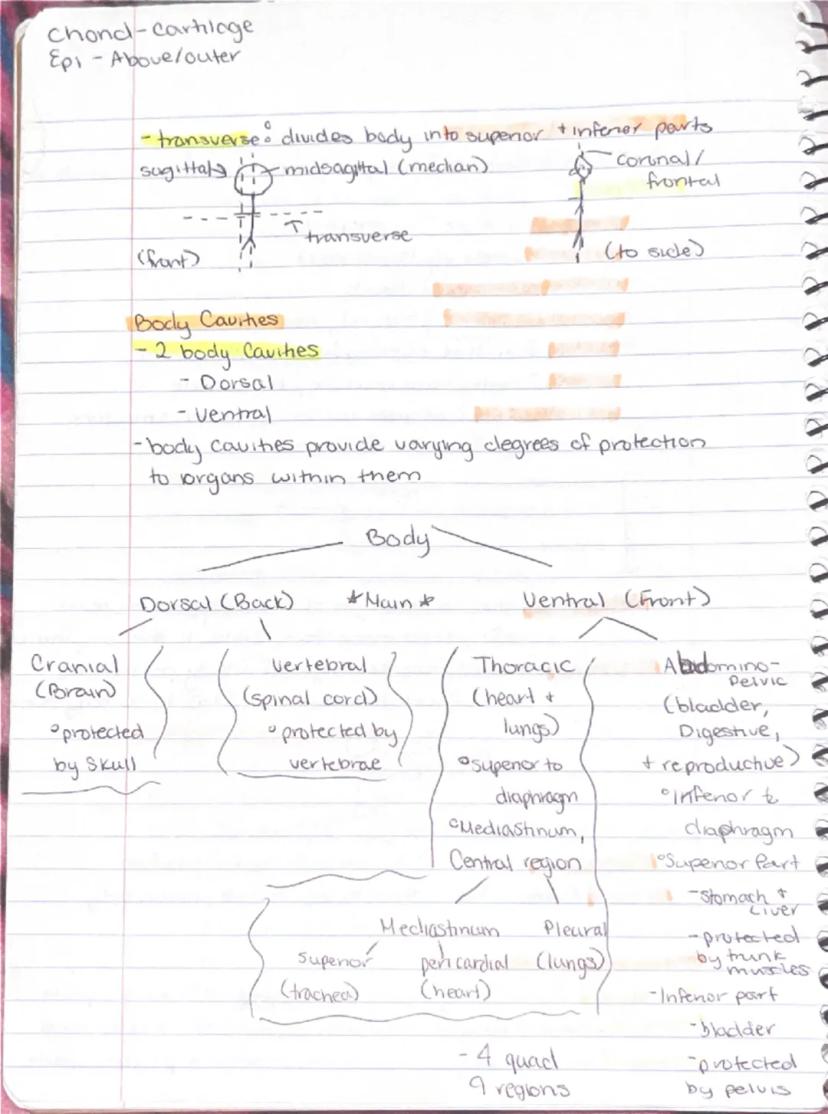 Chond-cartilage
Epi - Above/outer
- transverse: divides body into superior + inferior parts
sagittal midsagittal (median)
coronal/
frontal
transverse
(front)
(to side)
Body Cavities
- 2 body Cavities
- Dorsal
- Ventral
- body cavities provide varying degrees of protection
to organs within them
Body
Dorsal (Back) *Main* Ventral (Front)
Cranial
(Brain)
° protected
by Skull
Vertebral
(spinal cord)
° protected by
vertebrae
Thoracic
(heart +
lungs)
° Superior to
diaphragm
° Mediastinum,
Central region
Abdomino-
Pelvic
(bladder,
Digestive,
+ reproductive)
° Inferior to
diaphragm
° Superior Part
- Stomach +
Liver
- protected
by trunk
muscles
- Inferior part
- bladder
- protected
by pelvis
Mediastinum Pleural
(lungs)
Superior
(trachea)
pericardial
(heart)
- 4 quad
9 regions